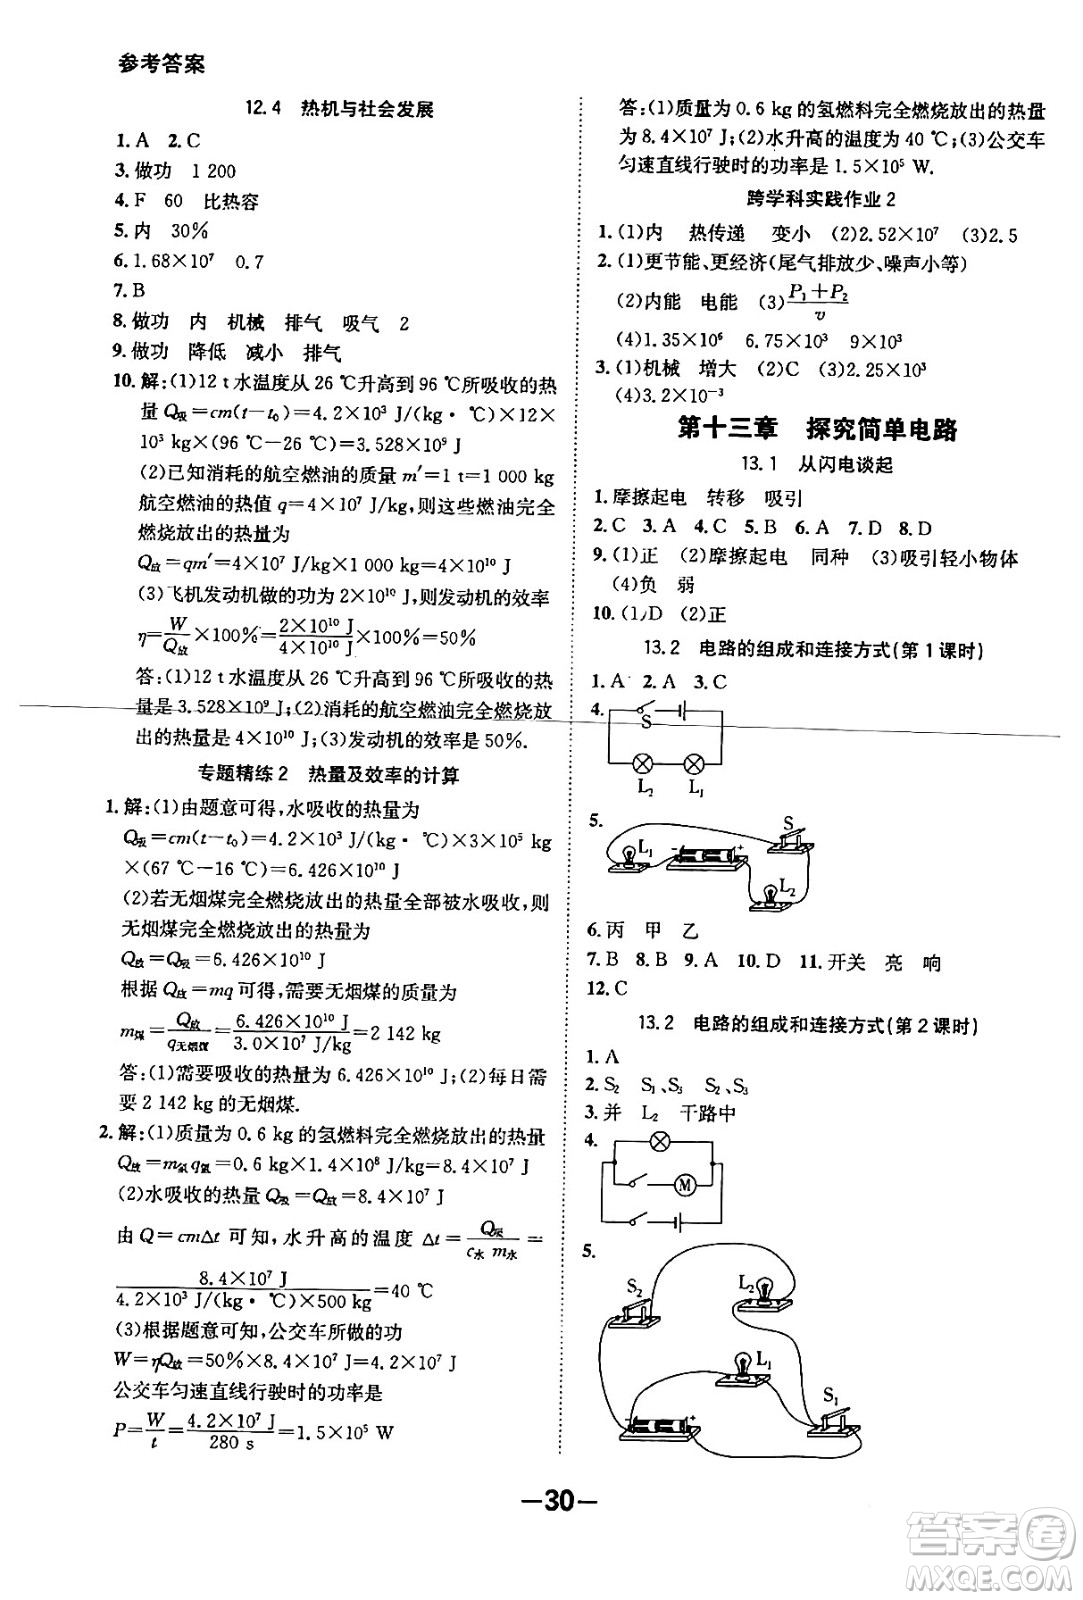 参考答案
12.4 热机与社会发展
1. A 2. C
3. 做功 1 200
4. F 60 比热容
5. 内 30%
6. 1.68×10⁷ 0.7
7. B
8. 做功 内 机械 排气 吸气 2
9. 做功 降低 减小 排气
10. 解:(1)12 t 水温度从 26 ℃升高到 96 ℃所吸收的热
量 Q吸=cm(t-t₀)=4.2×10³ J/(kg·℃)×12×
10³ kg×(96 ℃-26 ℃)=3.528×10⁹ J
(2)已知消耗的航空燃油的质量 m′=1 t=1 000 kg
航空燃油的热值 q=4×10⁷ J/kg,则这些燃油完全
燃烧放出的热量为
Q放=qm′=4×10⁷ J/kg×1 000 kg=4×10¹⁰ J
(3)飞机发动机做的功为 2×10¹⁰ J,则发动机的效率
η=W/Q放×100%=2×10¹⁰ J/4×10¹⁰ J×100%=50%
答:(1)12 t 水温度从 26 ℃升高到 96 ℃所吸收的热
量是 3.528×10⁹ J;(2)消耗的航空燃油完全燃烧放
出的热量是 4×10¹⁰ J;(3)发动机的效率是 50%.
专题精练 2 热量及效率的计算
1. 解:(1)由题意可得,水吸收的热量为
Q吸=cm(t-t₀)=4.2×10³ J/(kg·℃)×3×10⁵ kg
×(67 ℃-16 ℃)=6.426×10¹⁰ J
(2)若无烟煤完全燃烧放出的热量全部被水吸收,则
无烟煤完全燃烧放出的热量为
Q放=Q吸=6.426×10¹⁰ J
根据 Q放=mq 可得,需要无烟煤的质量为
m煤=Q放/q无烟煤=6.426×10¹⁰ J/3.0×10⁷ J/kg=2 142 kg
答:(1)需要吸收的热量为 6.426×10¹⁰ J;(2)每日需
要 2 142 kg 的无烟煤.
2. 解:(1)质量为 0.6 kg 的氢燃料完全燃烧放出的热量
Q放=m氢q氢=0.6 kg×1.4×10⁸ J/kg=8.4×10⁷ J
(2)水吸收的热量 Q吸=Q放=8.4×10⁷ J
由 Q=cmΔt 可知,水升高的温度 Δt=Q吸/c水m水=
8.4×10⁷ J/4.2×10³ J/(kg·℃)×500 kg=40 ℃
(3)根据题意可知,公交车所做的功
W=ηQ放=50%×8.4×10⁷ J=4.2×10⁷ J
公交车匀速直线行驶时的功率是
P=W/t=4.2×10⁷ J/280 s=1.5×10⁵ W
答:(1)质量为 0.6 kg 的氢燃料完全燃烧放出的热量
为 8.4×10⁷ J;(2)水升高的温度为 40 ℃;(3)公交车
匀速直线行驶时的功率是 1.5×10⁵ W.
跨学科实践作业 2
1. (1)内 热传递 变小 (2)2.52×10⁷ (3)2.5
2. (1)更节能、更经济(尾气排放少、噪声小等)
(2)内能 电能 (3)P₁+P₂/v
(4)1.35×10⁶ 6.75×10³ 9×10³
3. (1)机械 增大 (2)2.25×10³ (3)9×10³
(4)3.2×10⁻³
第十三章 探究简单电路
13.1 从闪电谈起
1. 摩擦起电 转移 吸引
2. C 3. A 4. C 5. B 6. A 7. D 8. D
9. (1)正 (2)摩擦起电 同种 (3)吸引轻小物体
(4)负 弱
10. (1)D (2)正
13.2 电路的组成和连接方式(第 1 课时)
1. A 2. A 3. C
4.
S
L₂ L₁
5.
S
L₁ - +
L₂
6. 丙 甲 乙
7. B 8. B 9. A 10. D 11. 开关 亮 响
12. C
13.2 电路的组成和连接方式(第 2 课时)
1. A
2. S₂ S₁、S₃ S₂、S₃
3. 并 L₂ 干路中
4.
M
5.
S₂ L₂
L₁
S₁
- +
—30—
答案圈
MXQE.COM